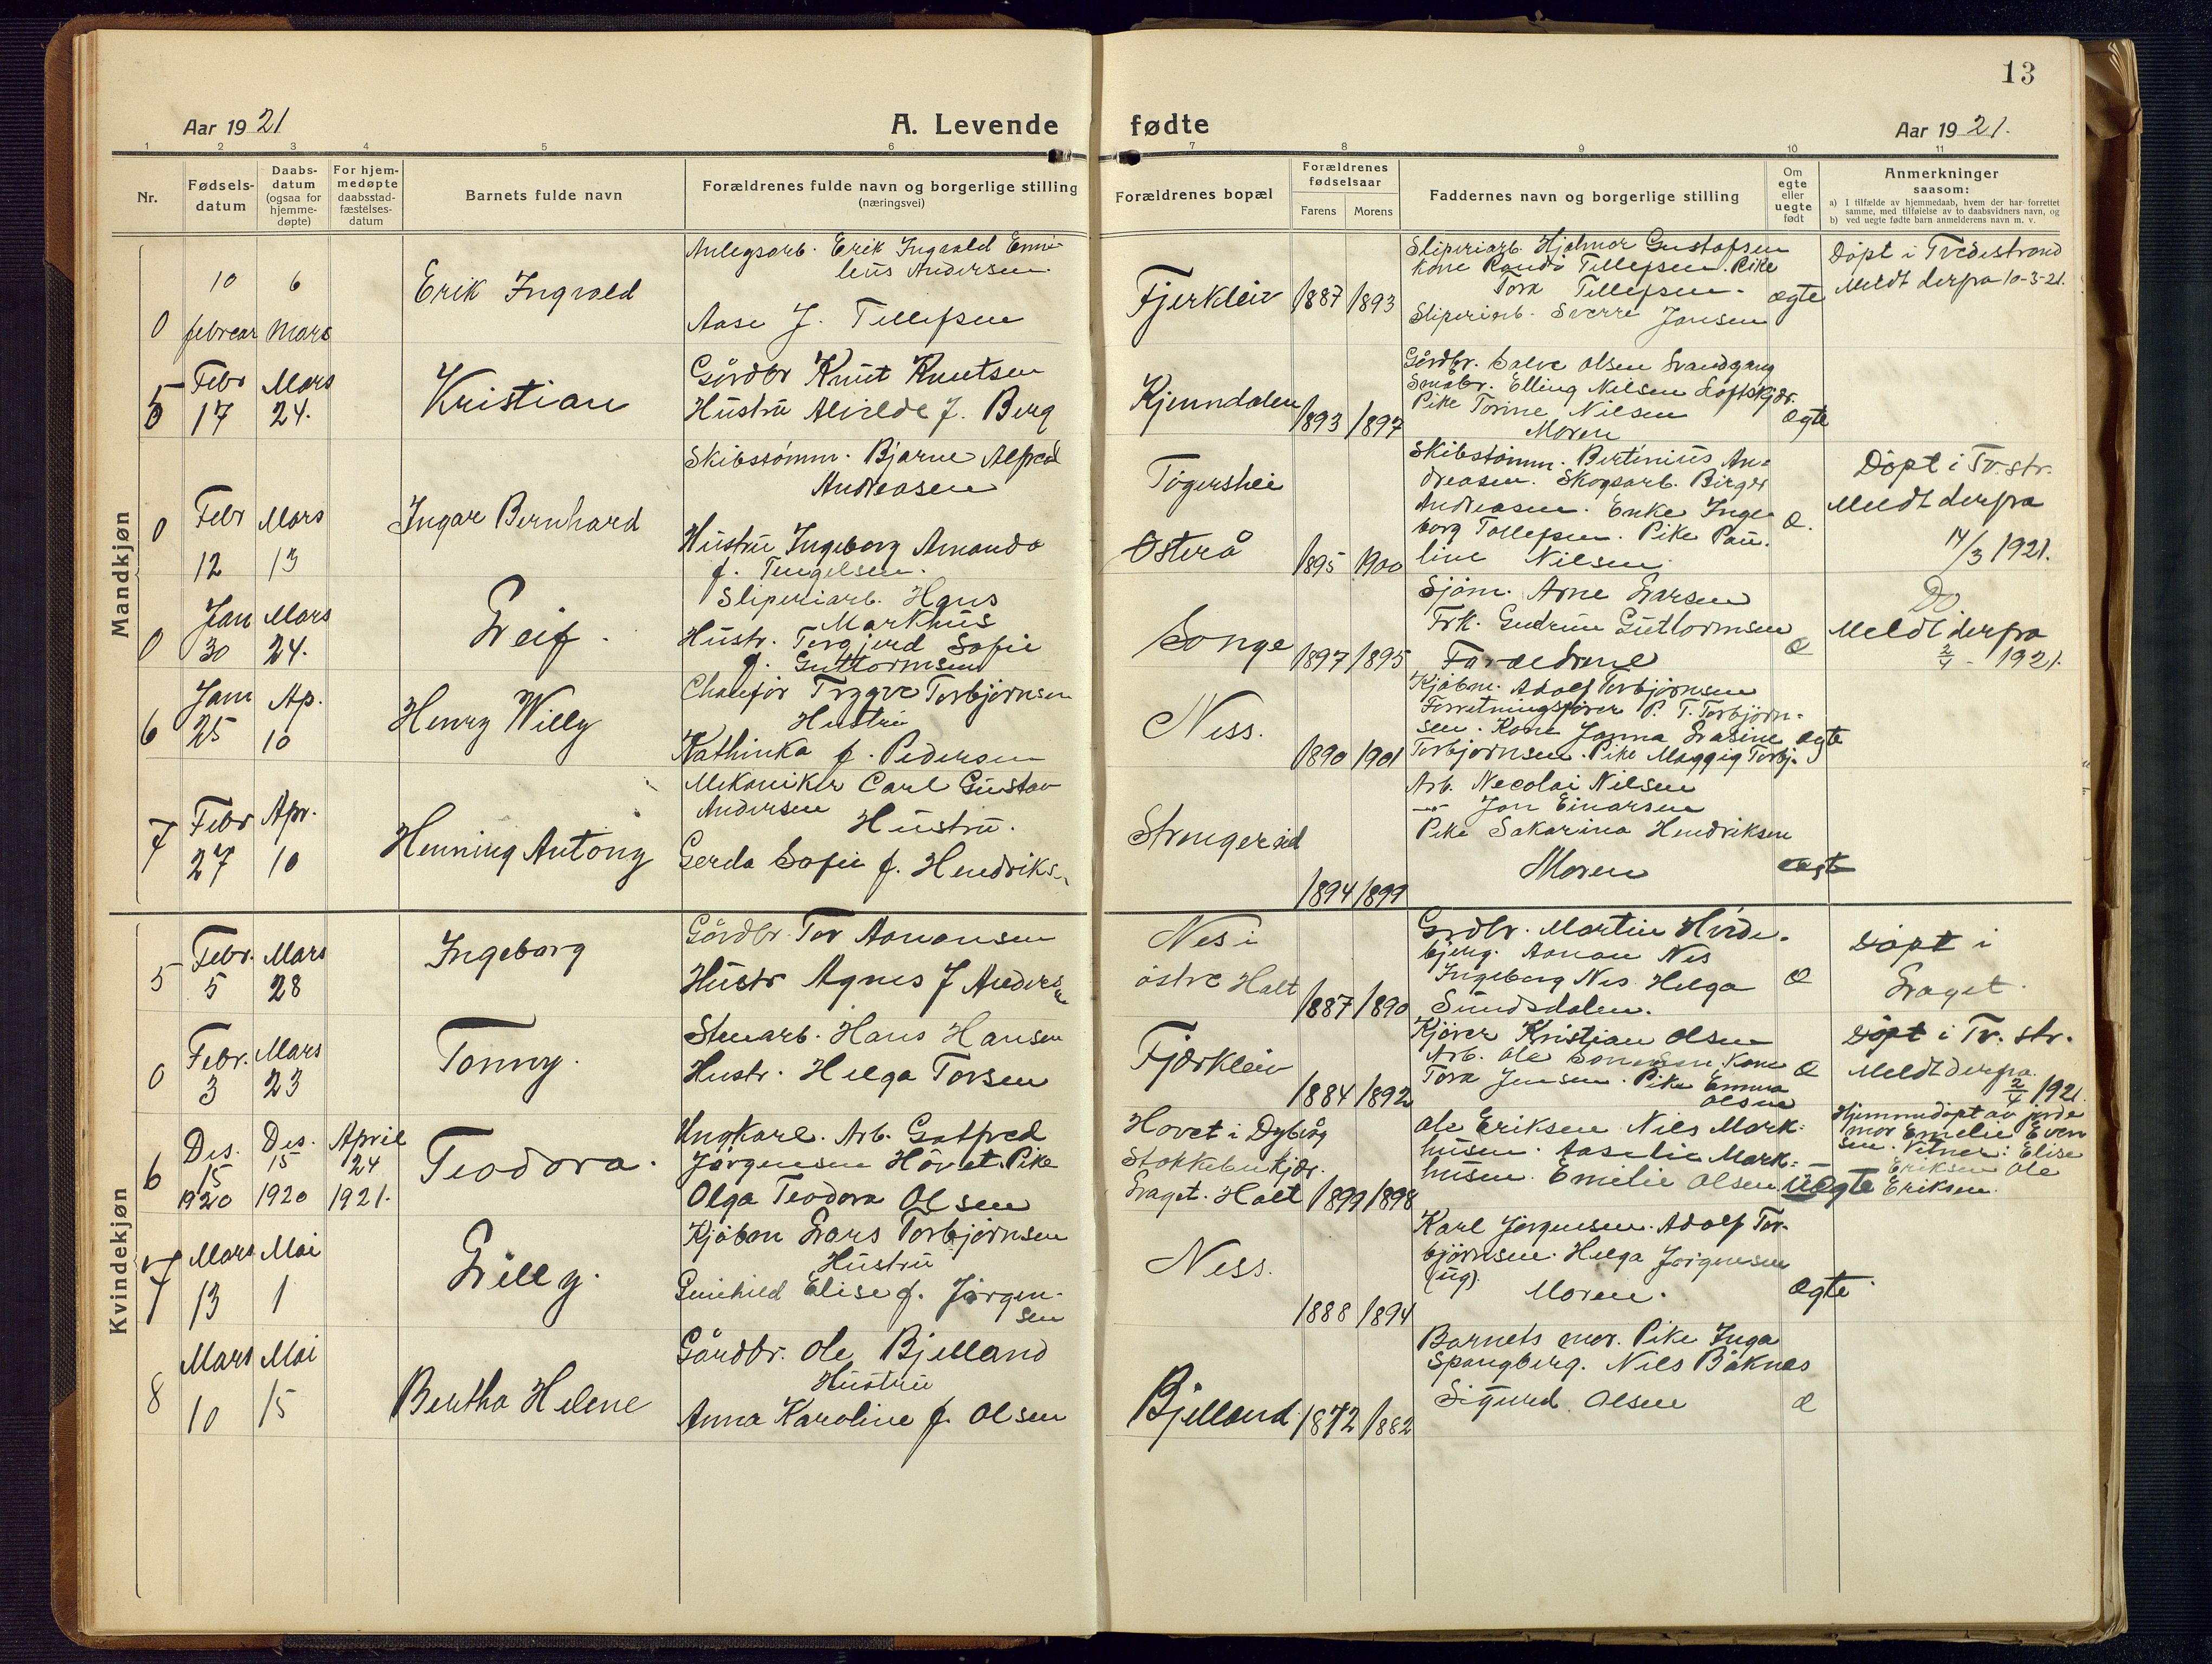 13
Aar 1921
A. Levende fødte
Aar 1921.
1 2 3 4 5 6 7 8 9 10 11
Nr.
Fødsels-
datum
Daabs-
datum
(ogsaa for
hjemme-
døpte)
For hjem-
medøpte
daabsstad-
fæstelses-
datum
Barnets fulde navn
Forældrenes fulde navn og borgerlige stilling
(næringsvei)
Forældrenes bopæl
Forældrenes
fødselsaar
Farens Morens
Faddernes navn og borgerlige stilling
Om
egte
eller
uegte
født
Anmerkninger
saasom:
a) I tilfælde av hjemmedaab, hvem der har forrettet
samme, med tilføielse av to daabsvidners navn, og
b) ved uegte fødte barn anmelderens navn m. v.
Mandkjøn
0
10
februar
6
Mars
Erik Ingvald
Anlegsarb. Erik Ingvald Emi-
lius Andersen
Aase J. Tellefsen
Fjerkleiv
1887 1893
Sliperiarb. Hjalmar Gustafsen
Kone Randi Tellefsen. Pike
Tora Tellefsen.
Sliperiarb. Sverre Jansen
ægte
Döpt i Tvedestrand
Meldt derfra 10-3-21.
5
Febr
17
Mars
24.
Kristian
Gårdbr Knut Knutsen
Hustru Alvilde f. Berg
Kjenndalen
1893 1897
Gårdbr. Salve Olsen Grandgang
Småbr. Elling Nilsen Loftskjær.
Pike Torine Nilsen
Moren
Ægte
0
Febr
12
Mars
13
Ingar Bernhard
Skibstömm. Bjarne Alfred
Andreasen
Hustru Ingeborg Amanda
f. Tengelsen.
Tögershei
Österå
1895 1900
Skibstömm. Bertinius An-
dreasen. Skogsarb. Birger
Andreasen. Enke Inge-
borg Tollefsen. Pike Pau-
line Nilsen
Æ.
Döpt i Tv.str.
Meldt derfra
14/3 1921.
0
Jan
30
Mars
24.
Leif.
Sliperiarb. Hans
Markhus
Hustr. Torgjerd Sofie
f. Guttormsen
Songe
1897 1895
Sjöm. Arne Larsen
Frk. Gudrun Guttormsen
Forældrene
Æ
Do
Meldt derfra
2/4 - 1921.
6
Jan
25
Ap.
10
Henry Willy
Chauför Trygve Torbjörnsen
Hustru
Kathinka f. Pedersen
Ness.
1890 1901
Kjöbm. Adolf Torbjörnsen
Forretningsförer P. T. Torbjörn-
sen. Kone Janna Lasine
Torbjörnsen. Pike Maggig Torbj.
Ægte
7
Febr
27
Apr.
10
Henning Antony
Mekaniker Carl Gustav
Andersen
Hustru.
Gerda Sofie f. Hendriksn
1894 1899
Arb. Necolai Nilsen
—"— Jan Einarsen
Pike Sakarina Hendriksen
Moren
ægte
Kvindekjøn
5
Febr.
5
Mars
28
Ingeborg
Gårdbr. Tor Aanonsen
Hustr Agnes f Andersen
Nes i
östre Holt
1887 1890
Grdbr. Martin Hvide-
bjerg. Aanon Nes
Ingeborg Nes. Helga
Sundsdalen.
Æ
Döpt i
Laget.
0
Febr.
3
Mars
23
Tonny.
Stenarb. Hans Hansen
Hustr. Helga Torsen
Fjærkleiv
1884 1892
Kjörer Kristian Olsen
Arb. Ole Sörensen, Kone
Tora Jensen. Pike Emma
Olsen
Æ
Döpt i Tv. str.
Meldt derfra
2/4 1921.
6
Des.
15
1920
Des.
15
1920
April
24
1921.
Teodora.
Ungkarl. Arb. Gotfred
Jörgensen Hovet. Pike
Olga Teodora Olsen
Hovet i Dybvåg
Stokkebukjær.
Laget. Holt
1899 1898
Ole Eriksen Nils Mark-
husen. Aaselie Mark-
husen. Emelie Olsen
Uægte
Hjemmedöpt av jorde
mor Emelie Even
sen. Vitner: Elise
Eriksen Ole
Eriksen.
7
Mars
13
Mai
1
Lilly.
Kjöbm Lars Torbjörnsen
Hustru
Gunhild Elise f. Jörgen-
sen
Ness.
1888 1894
Karl Jörgensen. Adolf Tor-
björnsen. Helga Jörgensen
(ug).
Moren.
Ægte.
8
Mars
10
Mai
15
Bertha Helene
Gårdbr. Ole Bjelland
Hustru
Anna Karoline f. Olsen
Bjelland
1872 1882
Barnets mor. Pike Inga
Spangberg. Nils Båknes
Sigurd Olsen
Æ